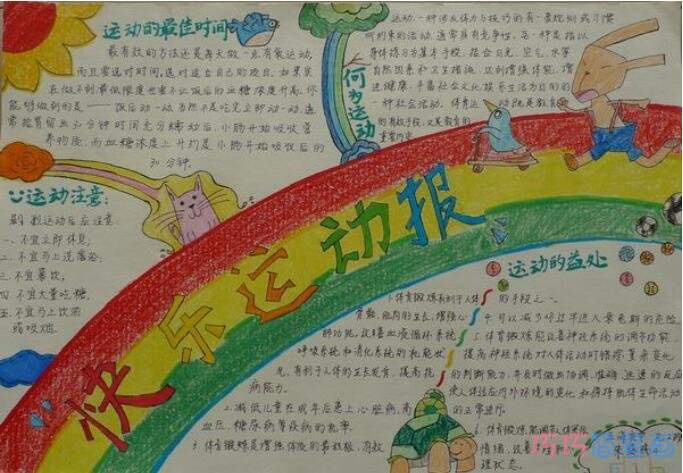 运动的最佳时间
最有效的方法还是每天做一点有氧运动,
而且要选对时间,选对适合自己的项目。如果实
在做不到最低限度也要不让饭后的血糖浓度升高,你
能够做到的是——饭后动一动,当然不是吃完立即动一动,通
常抢胃留出30分钟时间充分蠕动后,小肠开始吸收营
养物质,而血糖浓度上升约是小肠开始吸收后的
30分钟。
何为运动
运动,一种涉及体力与技巧的有一套规则或习惯
所约束的活动,通常具有竞争性。另一种是指以
身体练习为基本手段,结合日光、空气、水等
自然因素和卫生措施,达到增强体能、增
进健康、丰富社会文化娱乐生活为目的的
一种社会活动。体育运动既是教育
的有效手段,又是教育的
重要内容。
运动注意:
剧烈运动后应注意:
一、不宜立即休息;
二、不宜马上洗澡浴;
三、不宜暴饮;
四、不宜大量吃糖;
五、不宜马上饮酒
或吸烟。
快乐运动报
运动的益处
1.体育锻炼有利于人体
骨骼、肌肉的生长,增强心
肺功能,改善血液循环系统、
呼吸系统和消化系统的机能状
况,有利于人体的生长发育,提高抗
病能力。
2.减低儿童在成年后患上心脏病,高
血压,糖尿病等疾病的机率。
3.体育锻炼是增强体质的最积极、有效
的手段之一。
4.可以减少你过早进入衰老期的危险。
5.体育锻炼能改善神经系统的调节功能,
提高神经系统对人体活动时错综复杂变化
的判断能力,并及时做出协调、准确、迅速的反应
使人体适应内外环境的变化和保持肌体生命活动
的正常进行。
6.体育锻炼能调节人体
情绪,改善
理状态。
巧巧简笔画